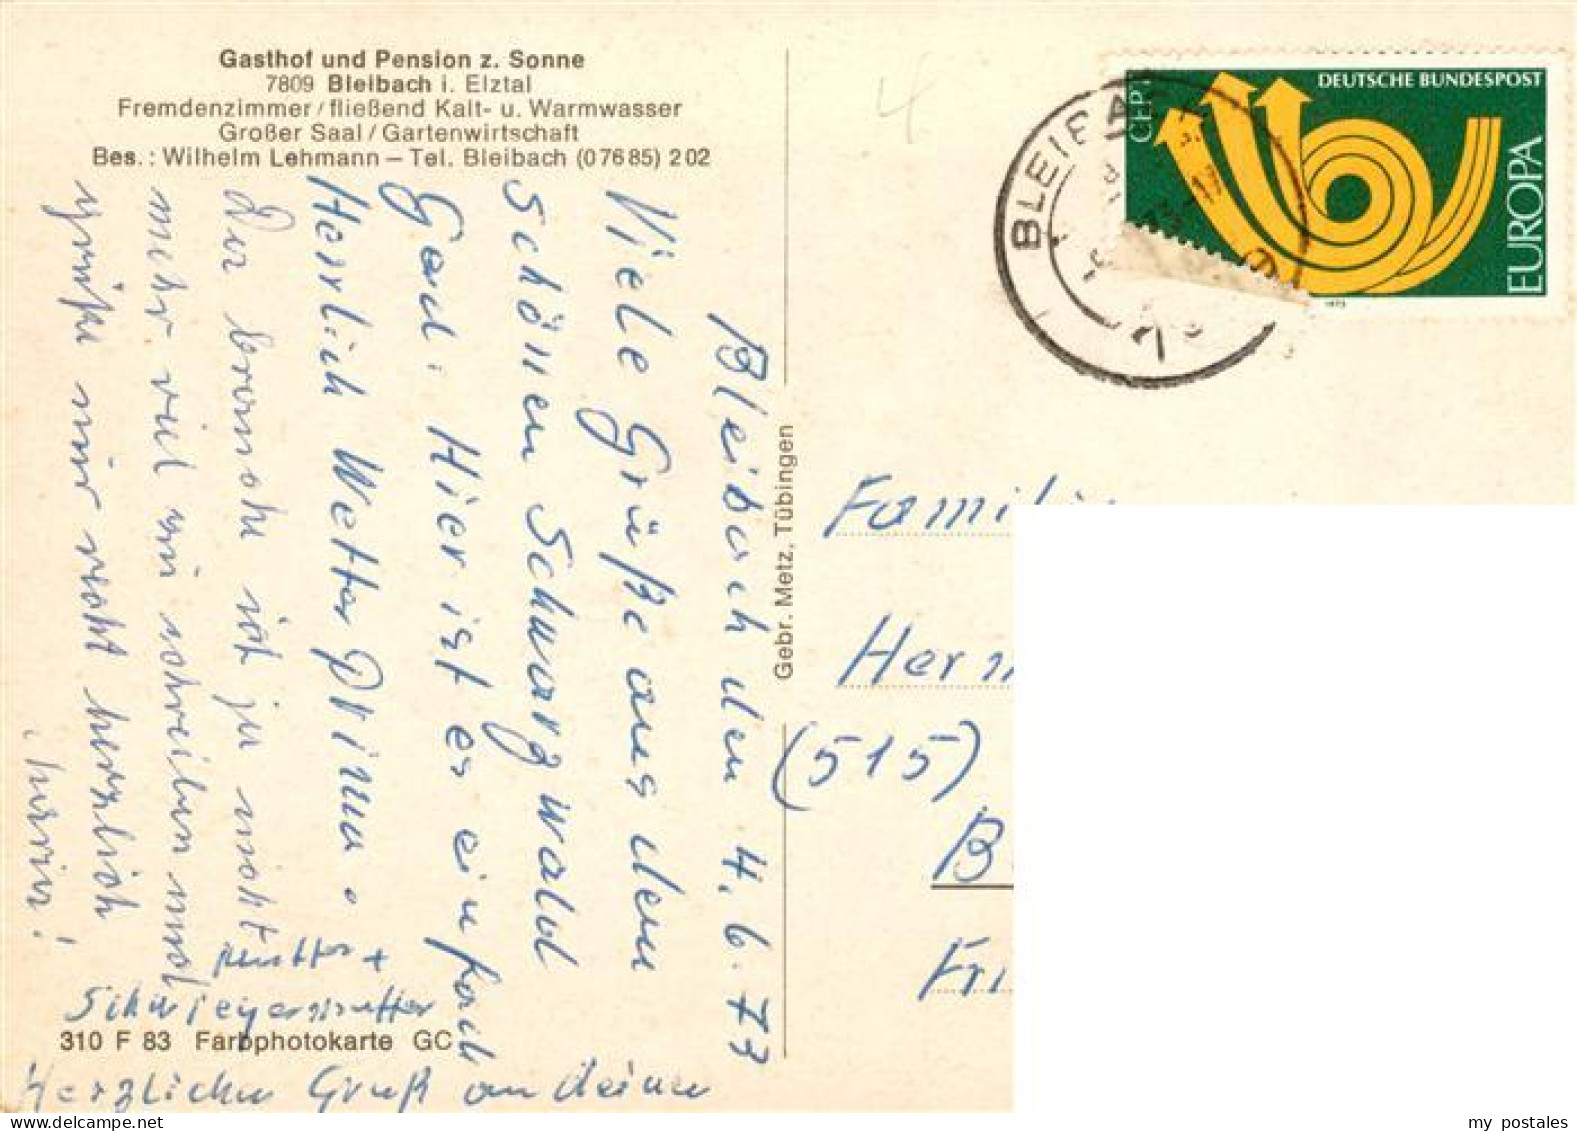 Gasthof und Pension z. Sonne
7809 Bleibach i. Elztal
Fremdenzimmer / fließend Kalt- u. Warmwasser
Großer Saal / Gartenwirtschaft
Bes.: Wilhelm Lehmann – Tel. Bleibach (07685) 202
Bleibach den 4. 6. 73
Viele Grüße aus dem
schönen Schwarzwald
Hier ist es einfach
Herrlich Wetter Prima.
Du brauchst ja nicht
mehr viel schreiben
wir recht herzlich
Mutter +
Schwiegermutter
Herzlichen Gruß an deine
310 F 83 Farbphotokarte GC
Gebr. Metz, Tübingen
CEPT
DEUTSCHE BUNDESPOST
EUROPA
1973
BLEIBA
Famili
Herm
(515)
B
Fri
my postales
www.delcampe.net